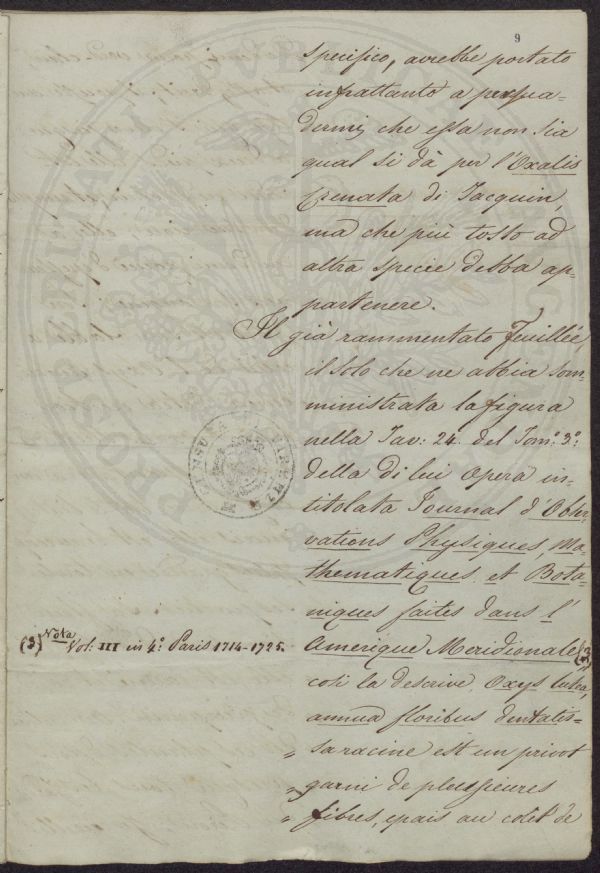 9
specifico, avrebbe portato
infrattanto a persua-
dermi, che essa non sia
qual si dà per l'Oxalis
Crenata di Jacquin,
ma che più tosto ad
altra specie debba ap-
partenere.
Il già rammentato Feuillée,
il solo che ne abbia som-
ministrata la figura
nella Tav: 24. del Tom.º 3º:
della di lui opera in-
titolata Journal d'Obser-
vations Physiques, Ma-
thematiques, et Bota-
niques faites dans l'
Amerique Meridionale (3)
così la descrive. Oxys lutea,
annua floribus dentatis-
" sa racine est un pivot
" garni de plusieures
" fibres, epais au colet de
(3) Nota
Vol: III in 4º Paris 1714-1725.